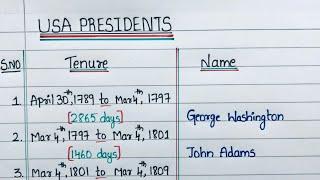 USA PRESIDENTS
S.NO Tenure Name
1. April 30th, 1789 to Mar 4th, 1797
[2865 days] George Washington
2. Mar 4th, 1797 to Mar 4th, 1801
[1460 days] John Adams
3. Mar 4th, 1801 to Mar 4th, 1809